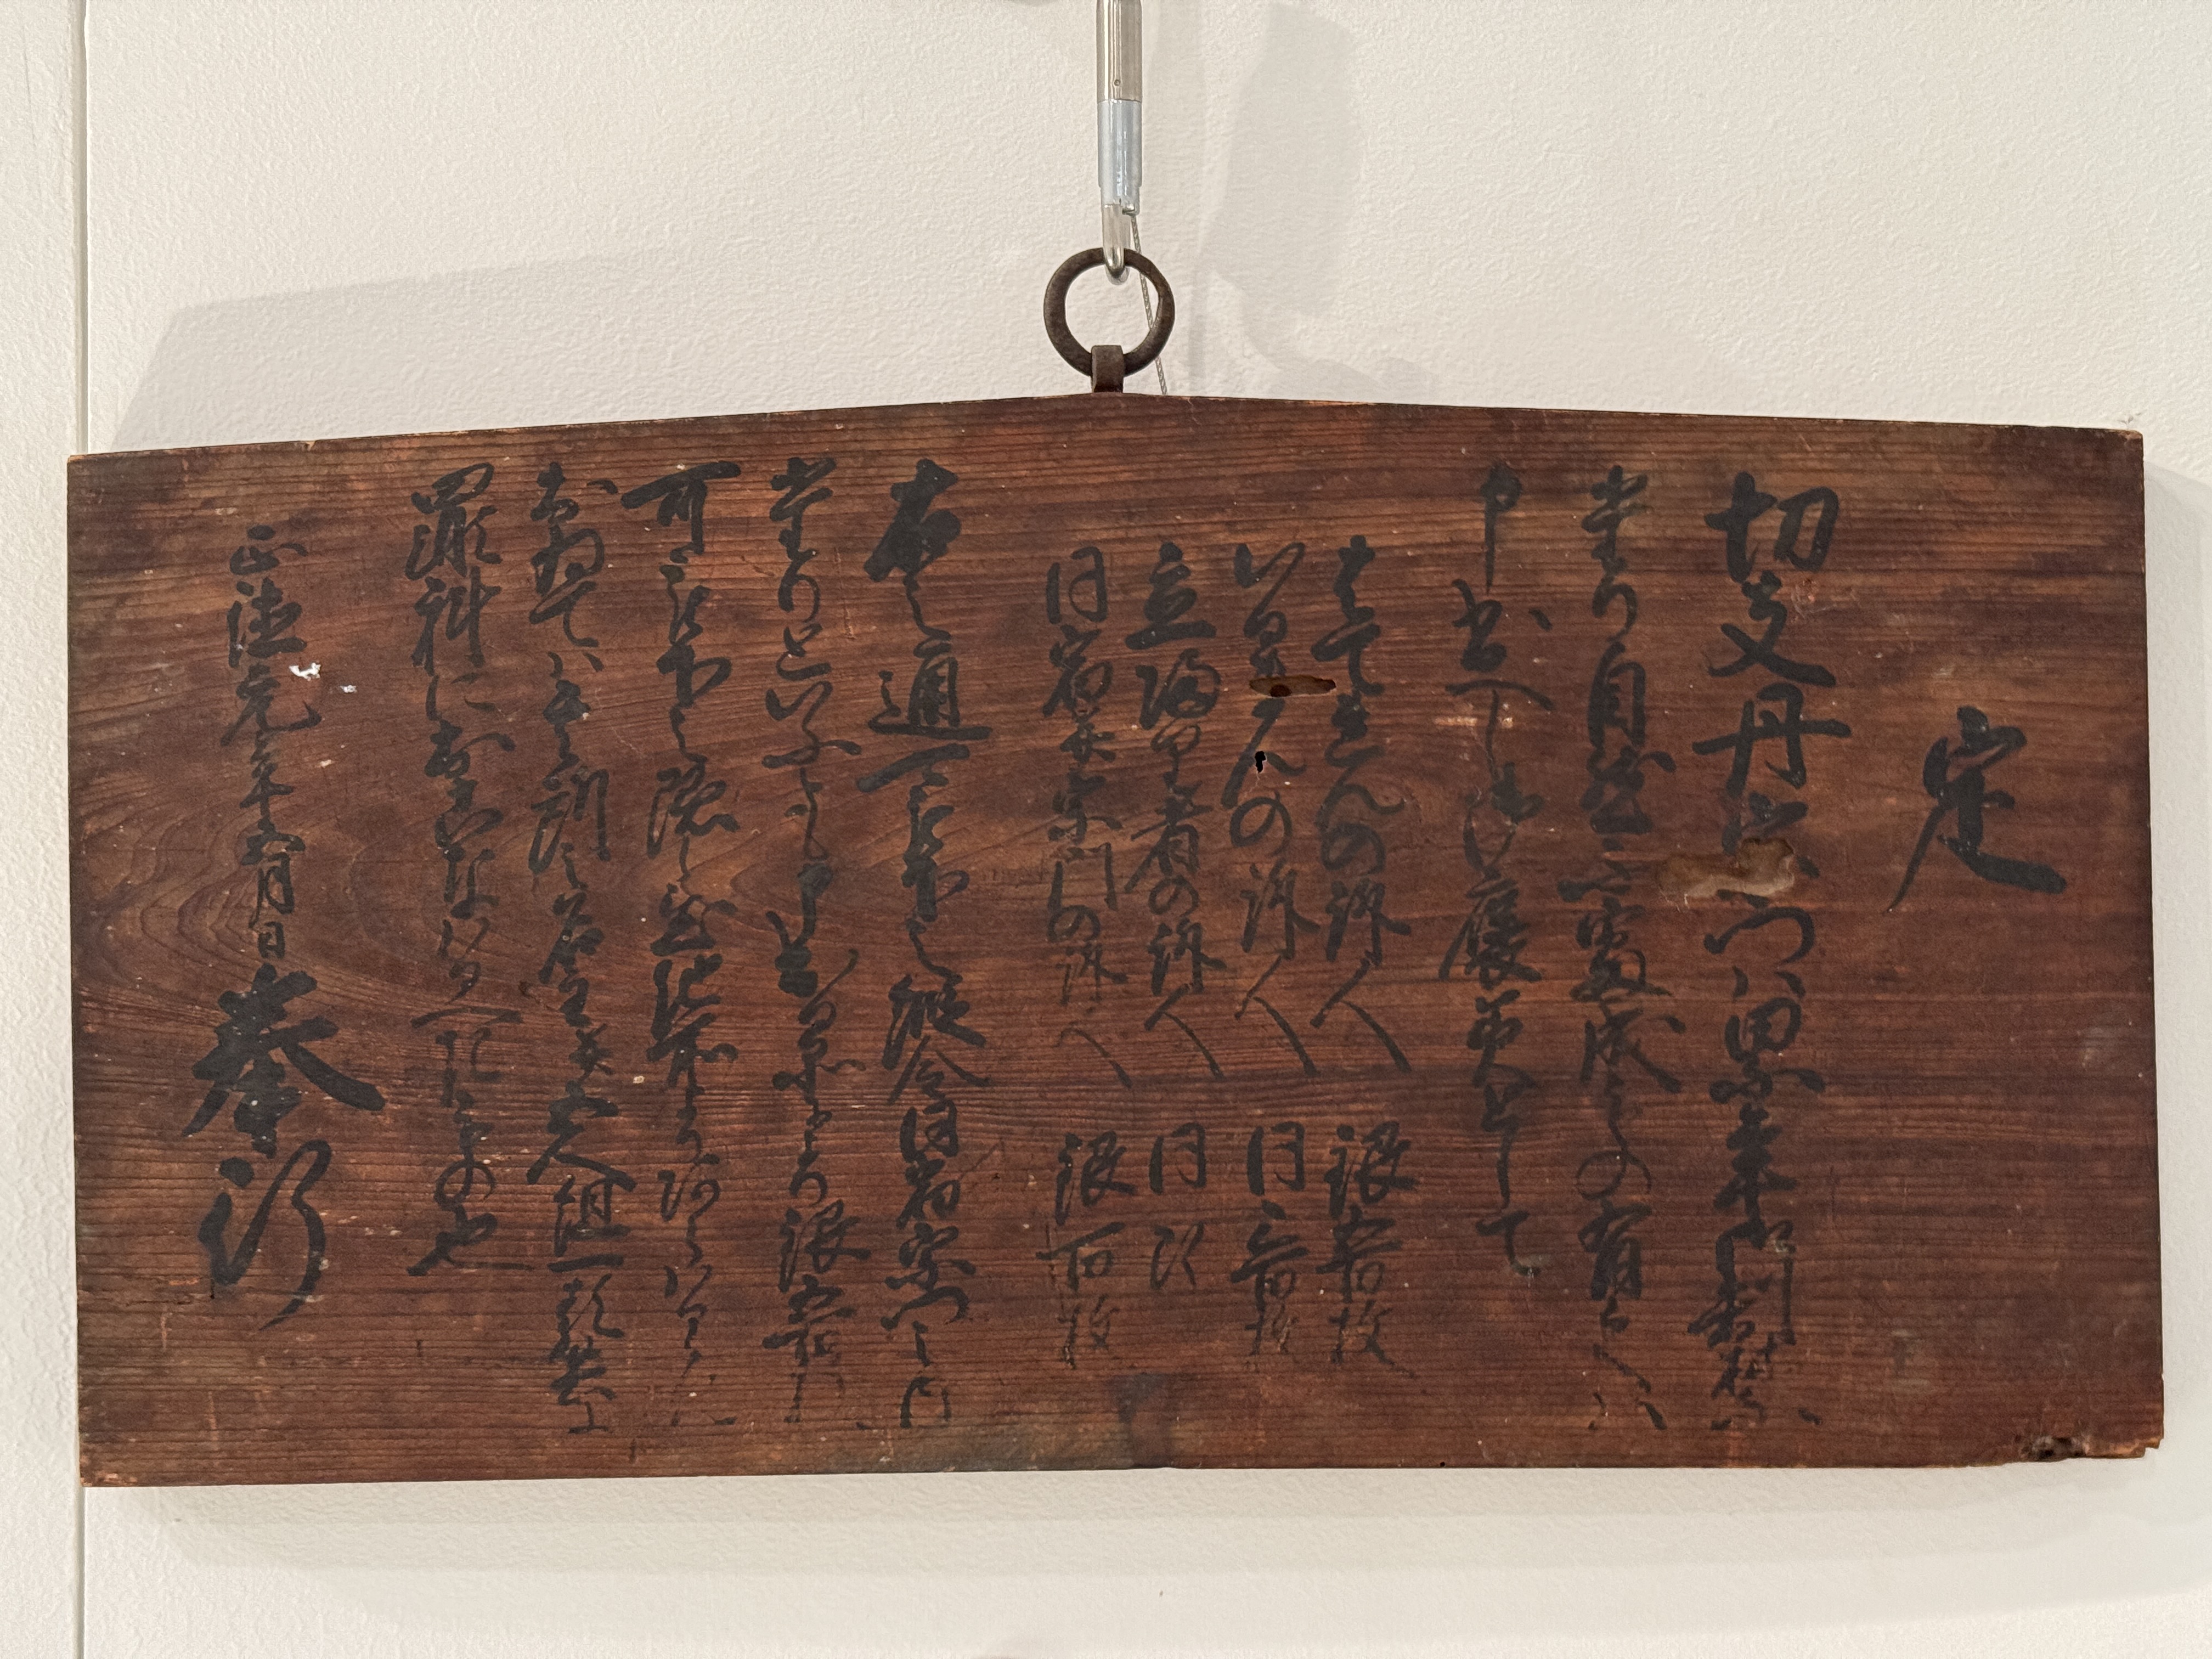 定
切支丹宗門ハ累年御制禁
たり自然不審成もの有之ハ
申出へし御褒美として
はてれんの訴人 銀五百枚
いるまんの訴人 同三百枚
立帰り者の訴人 同断
同宿并宗門の訴人 銀百枚
右之通可被下之縦令同宿宗門之内
たりといふとも申出る品により銀五百枚
可被下之隠し置他所よりあらはるゝに
おゐてハ其所之名主并五人組迄一類共に
罪科におこなはるへきもの也
正徳元年五月日 奉行